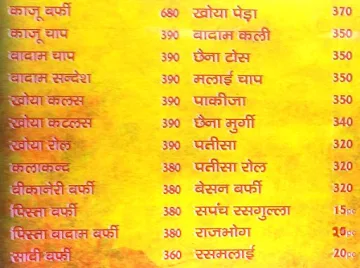 काजू बर्फी 680 खोया पेड़ा 370
काजू चाप 390 बादाम कली 350
बादाम चाप 390 छैना टोस 350
बादाम सन्देश 390 मलाई चाप 350
खोया कलस 390 पाकीजा 350
खोया कटलस 390 छैना मुर्गी 340
खोया रोल 390 पतीसा 320
कलाकन्द 380 पतीसा रोल 320
बीकानेरी बर्फी 380 बेसन बर्फी 320
पिस्ता बर्फी 380 सपंच रसगुल्ला 15
पिस्ता बादाम बर्फी 380 राजभोग 20
सादी बर्फी 360 रसमलाई 20